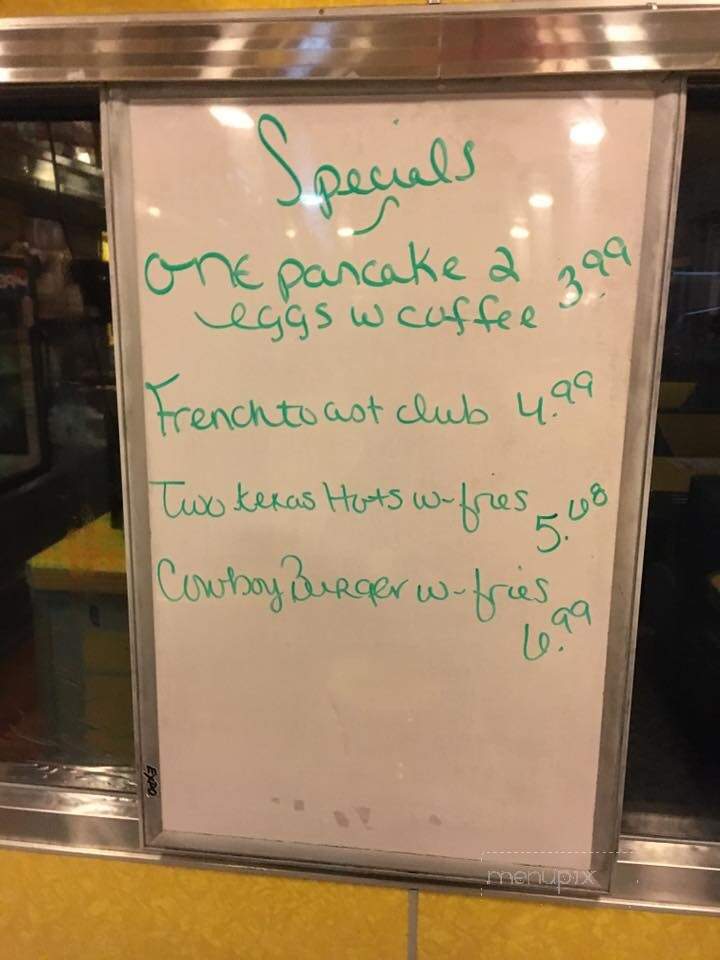 Specials
one pancake 2
eggs w coffee 3.99
French toast club 4.99
Two texas Hots w-fries
5.68
Cowboy Burger w-fries
6.99
EXPO
menupix